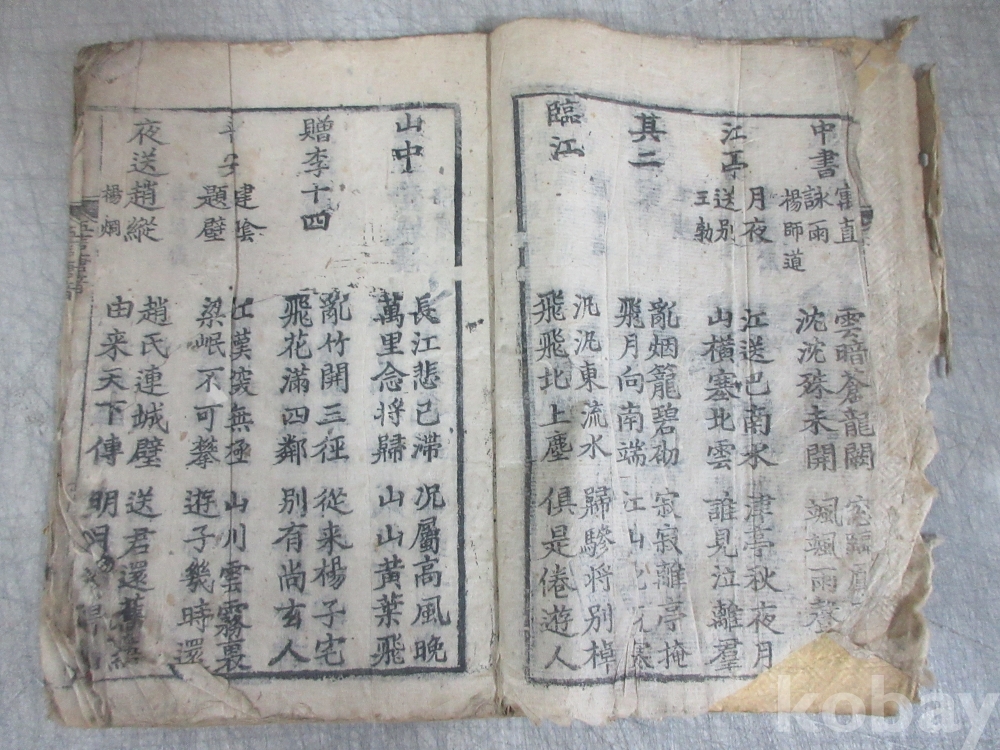 中書
寓直
詠雨
楊師道
雲暗蒼龍闕
沈沈殊未開
窓臨
颯颯雨聲
江亭
月夜
送別
王勃
江送巴南水
山橫塞北雲
津亭秋夜月
誰見泣離羣
其二
亂烟籠碧砌
飛月向南端
寂寂離亭掩
江山此夜寒
臨江
汎汎東流水
飛飛北上塵
歸驂將別棹
俱是倦遊人
山中
長江悲已滯
萬里念將歸
況屬高風晚
山山黃葉飛
贈李十四
亂竹開三徑
飛花滿四鄰
從来楊子宅
別有尚玄人
安
建陰
題壁
江漢深無極
梁岷不可攀
山川雲霧裏
遊子幾時還
夜送趙縱
楊烱
趙氏連城壁
由来天下傳
送君還舊
明月
kobay